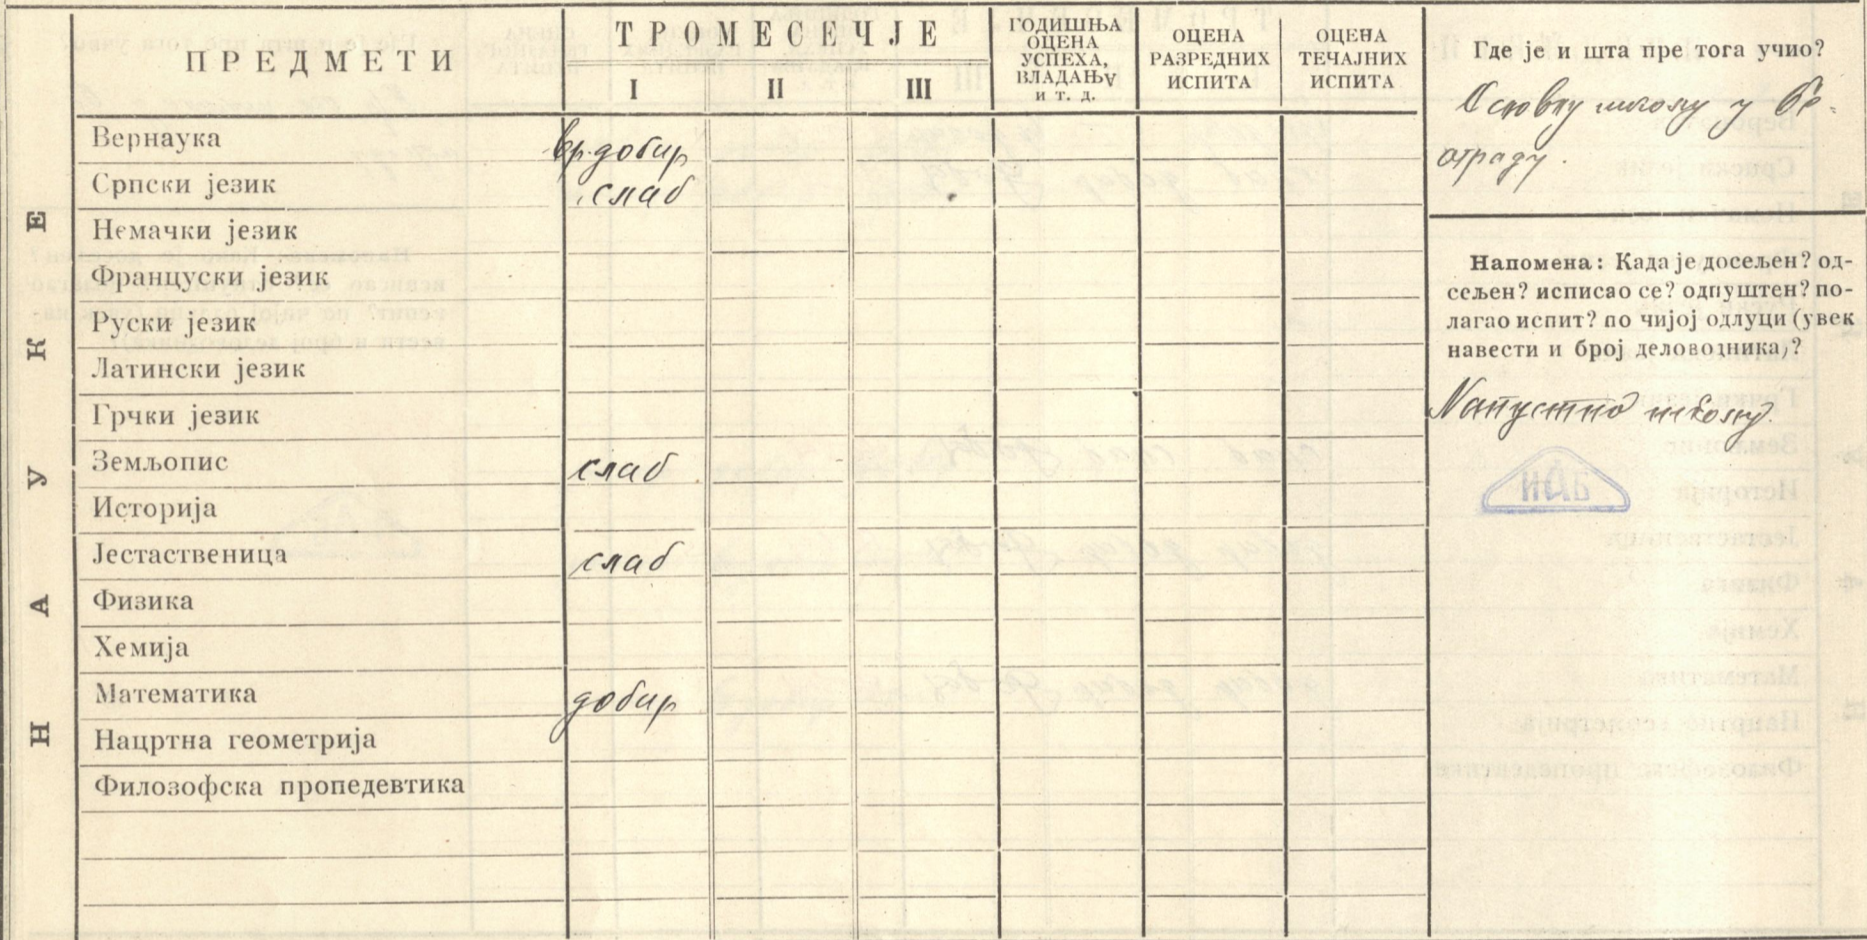 ПРЕДМЕТИ
ТРОМЕСЕЧЈЕ
I II III
ГОДИШЊА
ОЦЕНА
УСПЕХА,
ВЛАДАЊА
и т. д.
ОЦЕНА
РАЗРЕДНИХ
ИСПИТА
ОЦЕНА
ТЕЧАЈНИХ
ИСПИТА
НАУКЕ
Вернаука вр.добар
Српски језик слаб
Немачки језик
Француски језик
Руски језик
Латински језик
Грчки језик
Земљопис слаб
Историја
Јестаственица слаб
Физика
Хемија
Математика добар
Нацртна геометрија
Филозофска пропедевтика
Где је и шта пре тога учио?
Основну школу у Бе-
ограду.
Напомена: Када је досељен? од-
сељен? исписао се? одпуштен? по-
лагао испит? по чијој одлуци (увек
навести и број деловодника)?
Напустио школу.